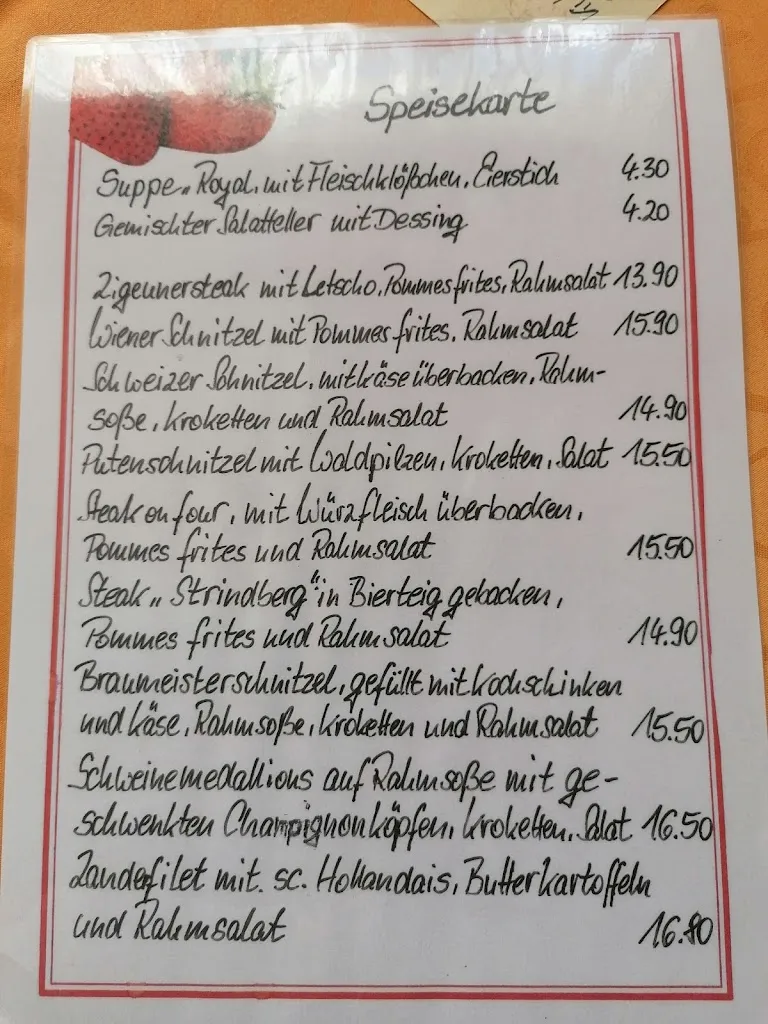 Speisekarte
Suppe „Royal, mit Fleischklößchen, Eierstich 4.30
Gemischter Salatteller mit Dessing 4.20
Zigeunersteak mit Letscho, Pommes frites, Rahmsalat 13.90
Wiener Schnitzel mit Pommes frites, Rahmsalat 15.90
Schweizer Schnitzel, mit Käse überbacken, Rahm-
soße, Kroketten und Rahmsalat 14.90
Putenschnitzel mit Waldpilzen, Kroketten, Salat 15.50
Steak on four, mit Würzfleisch überbacken,
Pommes frites und Rahmsalat 15.50
Steak „Strindberg“ in Bierteig gebacken,
Pommes frites und Rahmsalat 14.90
Braumeisterschnitzel, gefüllt mit Kochschinken
und Käse, Rahmsoße, Kroketten und Rahmsalat 15.50
Schweinemedallions auf Rahmsoße mit ge-
schwenkten Champignonköpfen, Kroketten, Salat 16.50
Zanderfilet mit sc. Hollandais, Butterkartoffeln
und Rahmsalat 16.80